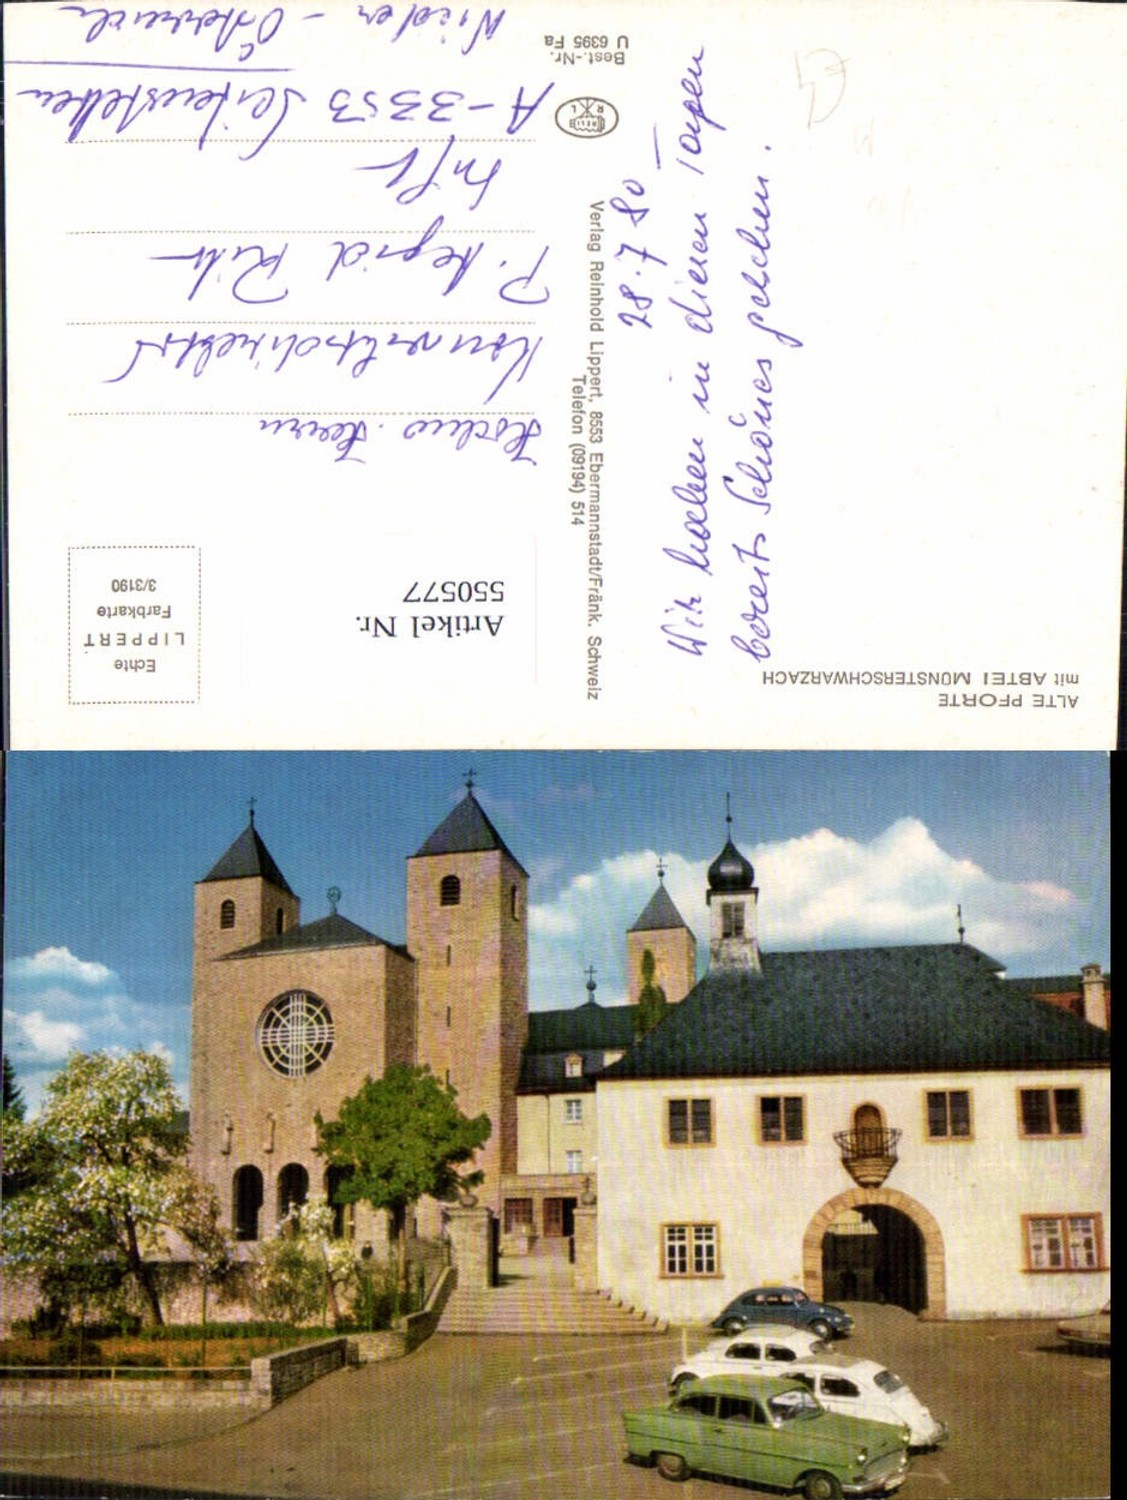 ALTE PFORTE
mit ABTEI MÜNSTERSCHWARZACH
28.7.80
Wir haben in diesen Tagen
bereits Schönes gesehen.
Verlag Reinhold Lippert, 8553 Ebermannstadt/Fränk. Schweiz
Telefon (09194) 514
Echte
LIPPERT
Farbkarte
3/3190
Artikel Nr.
550577
Hochw. Herrn
Konviktsdirektor
P.
Stift
A-3353 Seitenstetten
Nieder-Österreich
RELI
R L
Best.-Nr.
U 6395 Fa